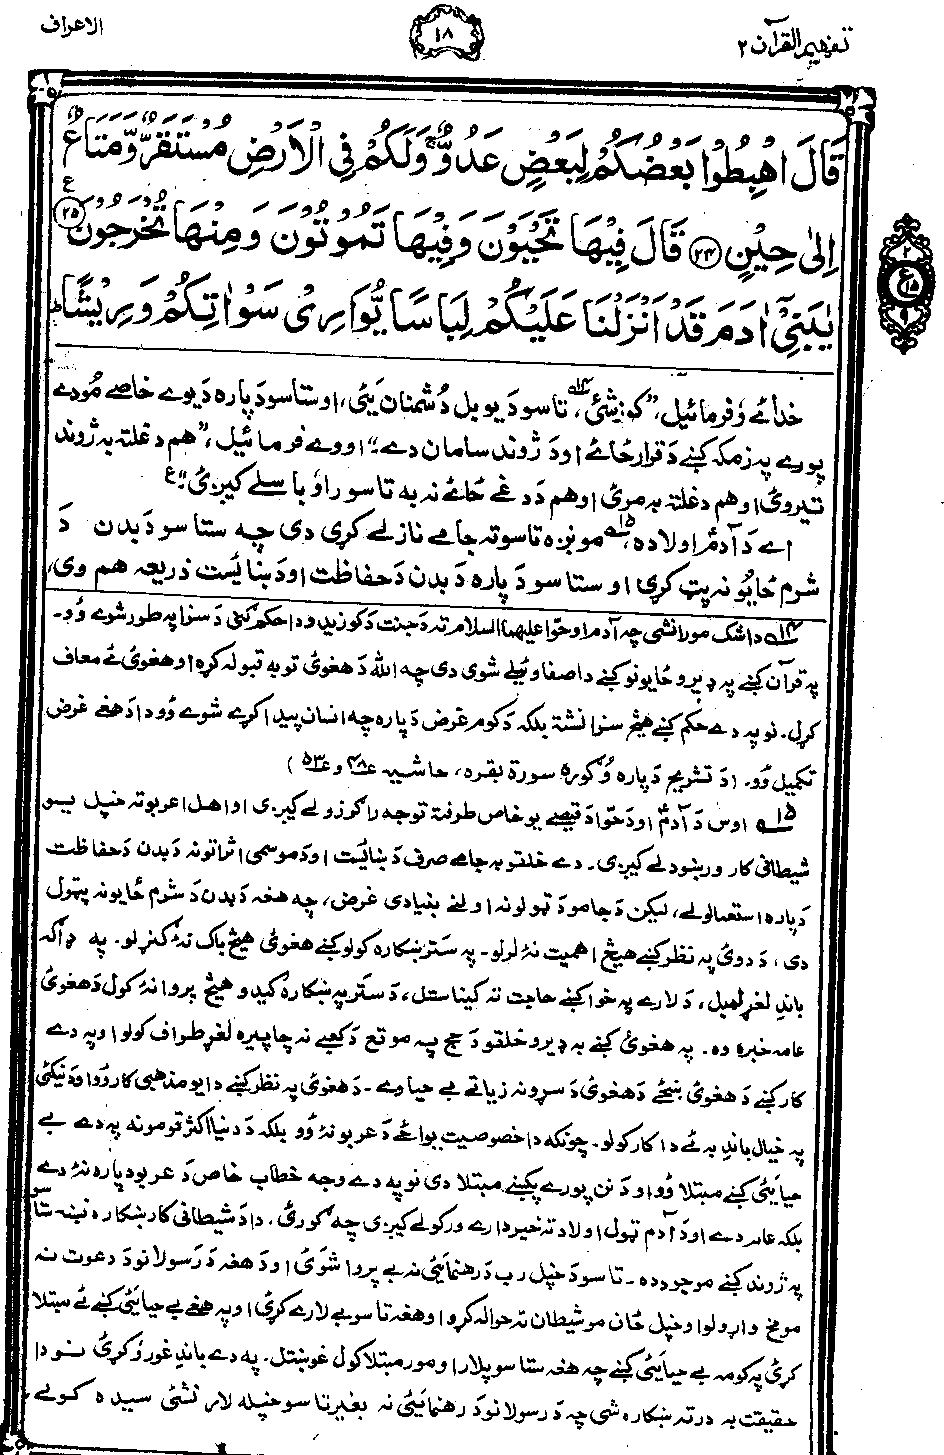 تفهيم القرآن ٢
١٨
الاعراف
قَالَ اهْبِطُوْا بَعْضُكُمْ لِبَعْضٍ عَدُوٌّ ۚ وَلَكُمْ فِى الْاَرْضِ مُسْتَقَرٌّ وَّمَتَاعٌ
اِلٰى حِيْنٍ ٢٤ قَالَ فِيْهَا تَحْيَوْنَ وَفِيْهَا تَمُوْتُوْنَ وَمِنْهَا تُخْرَجُوْنَ ٢٥
يٰبَنِىْٓ اٰدَمَ قَدْ اَنْزَلْنَا عَلَيْكُمْ لِبَاسًا يُّوَارِىْ سَوْاٰتِكُمْ وَرِيْشًا ط
خدائے وفرمائيل، ”کوزشئ،١٤ تاسو د يو بل دُشمنان يئ، اوستاسو دَپاره دَيوے خاصے مُودے
پورے په زمکه کښے دَ قرار ځائے اودَ ژوند سامان دے؛“ اووے فرمائيل، ”هم دغلته به ژوند
تيروئ اوهم دغلته به مرئ اوهم دَدغے ځائے نه به تاسو راوُباسلے کيږئ“ ع
اے دَ آدمؑ اولاده،١٥ مونږه تاسوته جامے نازلے کړی دی چه ستاسو دَبدن دَ
شرم ځايُونه پټ کړی او ستاسو دَپاره دَ بدن دَحفاظت اودَښائست ذريعه هم وی،
١٤ دا شک مه راوړئ چه آدم او حوّا عليهما السلام ته دَجنت دَ کوزيدو دا حکم ګنی دَ سزا په طور شوے وُو۔
په قرآن کښے په ډيرو ځايونو کښے دا صفا ويلے شوی دی چه الله دَهغوئ توبه قبوله کړه اوهغوئ ئے معاف
کړل۔ نو په دے حکم کښے هيڅ سزا نشته بلکه دَکوم غرض دَپاره چه انسان پيدا کړے شوے وُو دا دَهغے غرض
تکميل وُو۔ (دَ تشريح دَپاره وُګورئ سورة بقره، حاشيه ٤٨ و ٥٣)
١٥ اوس دَ آدمؑ اودَ حوّا دَ قيصے يو خاص طرفته توجه راګرزولے کيږی او اهل عربو ته خپل يو
شيطانی کار ورښودلے کيږی۔ دے خلقو به جامے صرف دَ ښائست اودَ موسمی اثراتو نه دَبدن دَحفاظت
دَپاره استعمالولے، ليکن دَ جامو دَ ټولو نه اولنے بنيادی غرض، چه هغه دَبدن دَشرم ځايونه پټول
دی، دَ دوئ په نظر کښے هيڅ اهميت نۀ لرلو۔ په ستر ښکاره کولو کښے هغوئ هيڅ باک نۀ ګنړلو۔ په ډاګه
باندِ لغړ لمبل، دَ لارے په خوا کښے حاجت ته کيناستل، دَ ستر په ښکاره کيدو هيڅ پروا نۀ کول دَهغوئ
عامه خبره وه۔ په هغوئ کښے به ډيرو خلقو دَ حج په موقع دَکعبے نه چاپيره لغړ طواف کولو اوپه دے
کار کښے دَ هغوئ ښځے دَهغوئ دَ سړو نه زياتے بے حيا وے۔ دَهغوئ په نظر کښے دا يو مذهبی کار وُو اودَ نيکئ
په خيال باندِ به ئے دا کار کولو۔ چونکه دا خصوصيت يواځے دَعربو نۀ وُو بلکه دَدنيا اکثر قومونه په دے بے
حيايئ کښے مبتلا وُو اودَ نن پورے پکښے مبتلا دی نو په دے وجه خطاب خاص دَ عربو دپاره نۀ دے
بلکه عام دے اودَ آدم ټول اولاد ته خبردارے ورکولے کيږی چه ګورئ، دا دَ شيطانی کار ښکاره نښه ستاسو
په ژوند کښے موجوده ده۔ تاسو دَ خپل رب دَ رهنمايئ نه بے پروا شوئ اودَ هغه دَ رسولانو دَ دعوت نه
مو مخ واړولو او خپل ځان مو شيطان ته حواله کړو اوهغه تاسو بے لارے کړئ اوپه هغے بے حيايئ کښے ئے مبتلا
کړئ په کومه بے حيايئ کښے چه هغه ستاسو پلار او مور مبتلا کول غوښتل۔ په دے باندِ غور وُکړئ نو دا
حقيقت به درته ښکاره شی چه دَ رسولانو دَ رهنمايئ نه بغير تاسو خپله لار نشئ سيده کولے